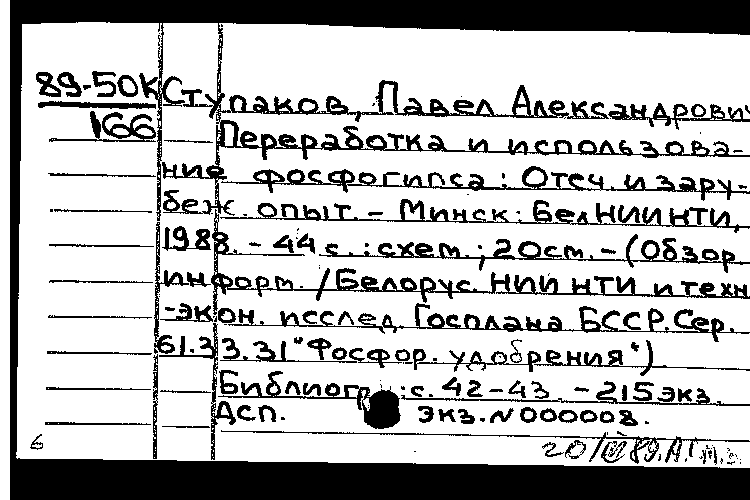 89-50К Ступаков, Павел Александрович
166 Переработка и использова-
ние фосфогипса: Отеч. и зару-
беж. опыт. - Минск: БелНИИНТИ,
1988. - 44 с.: схем.; 20см. - (Обзор.
информ. / Белорус. НИИ НТИ и техн
-экон. исслед. Госплана БССР. Сер.
61.33.31 "Фосфор. удобрения")
Библиогр.: с. 42-43. - 215 экз.
ДСП. экз. N 000008.
6